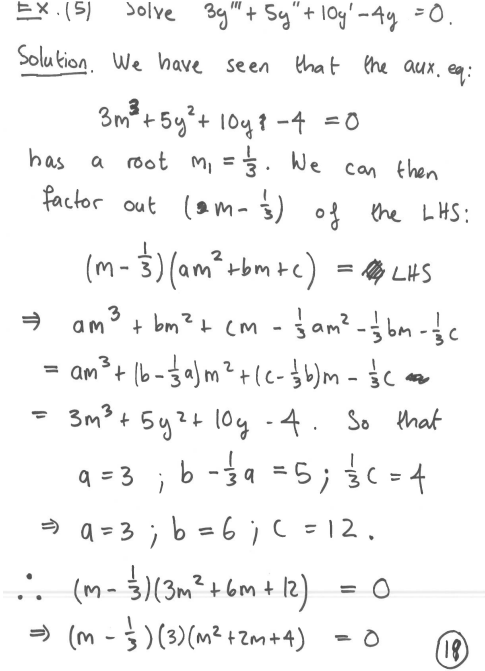 Ex. (5) Solve 3y''' + 5y'' + 10y' - 4y = 0.
Solution. We have seen that the aux. eq:
3m³ + 5y² + 10y - 4 = 0
has a root m₁ = 1/3. We can then
factor out (m - 1/3) of the LHS:
(m - 1/3)(am² + bm + c) = LHS
⇒ am³ + bm² + cm - 1/3 am² - 1/3 bm - 1/3 c
= am³ + (b - 1/3 a)m² + (c - 1/3 b)m - 1/3 c
= 3m³ + 5y² + 10y - 4. So that
a = 3 ; b - 1/3 a = 5 ; 1/3 c = 4
⇒ a = 3 ; b = 6 ; c = 12.
∴ (m - 1/3)(3m² + 6m + 12) = 0
⇒ (m - 1/3)(3)(m² + 2m + 4) = 0 (18)